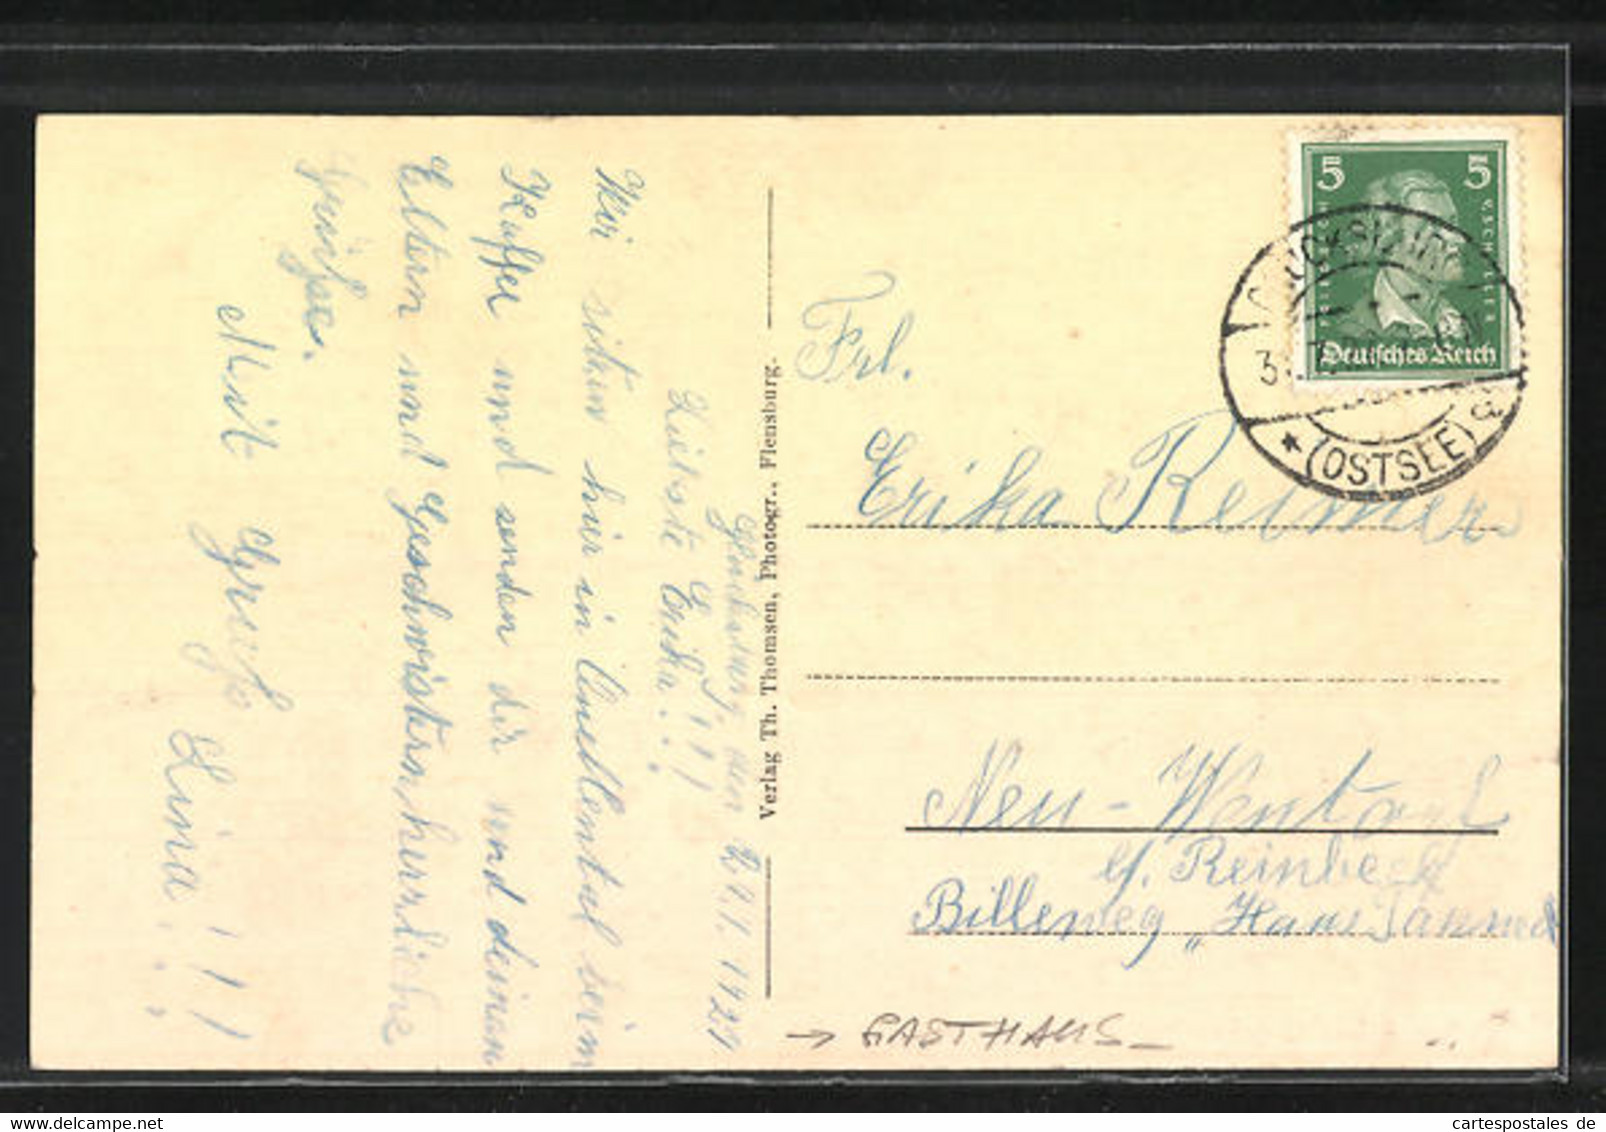 Glücksburg, den 29.1.1929
Liebste Erika!!!
Wir sitzen hier in Quellental beim
Kaffee und senden dir und deinen
Eltern und Geschwistern herzliche
Grüße.
Mit Gruß
Lina!!!
Verlag Th. Thomsen, Photogr., Flensburg.
5 5
Deutsches Reich
(OSTSEE)
Frl.
Erika Reimer
Neu-Wentorf
b. Reinbeck
Billeweg „Hans
→ GASTHAUS
cartespostales de